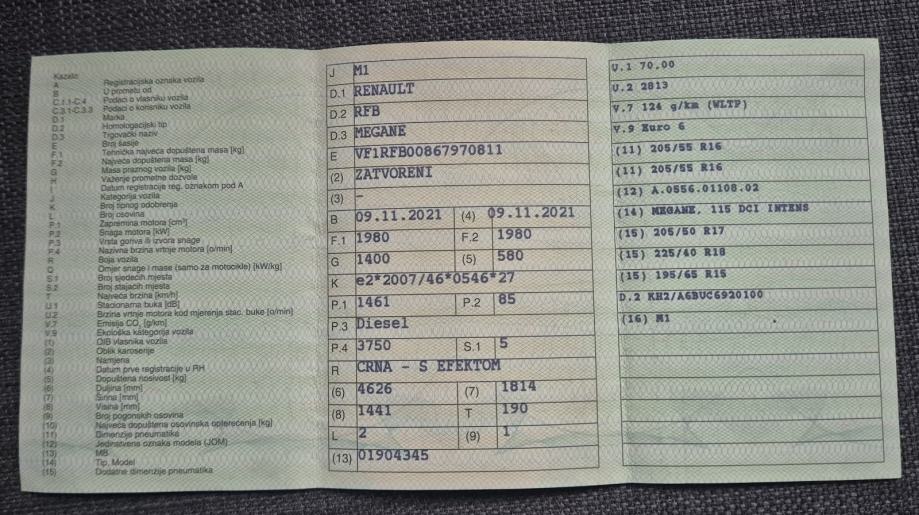 Kazalo
A Registracijska oznaka vozila
B U prometu od
C.1.1-C.4 Podaci o vlasniku vozila
C.3.1-C.3.3 Podaci o korisniku vozila
D.1 Marka
D.2 Homologacijski tip
D.3 Trgovački naziv
E Broj šasije
F.1 Tehnička najveća dopuštena masa [kg]
F.2 Najveća dopuštena masa [kg]
G Masa praznog vozila [kg]
H Važenje prometne dozvole
I Datum registracije reg. oznakom pod A
J Kategorija vozila
K Broj tipnog odobrenja
L Broj osovina
P.1 Zapremina motora [cm³]
P.2 Snaga motora [kW]
P.3 Vrsta goriva ili izvora snage
P.4 Nazivna brzina vrtnje motora [o/min]
R Boja vozila
Q Omjer snage i mase (samo za motocikle) [kW/kg]
S.1 Broj sjedećih mjesta
S.2 Broj stajaćih mjesta
T Najveća brzina [km/h]
U.1 Stacionarna buka [dB]
U.2 Brzina vrtnje motora kod mjerenja stac. buke [o/min]
V.7 Emisija CO₂ [g/km]
V.9 Ekološka kategorija vozila
(1) OIB vlasnika vozila
(2) Oblik karoserije
(3) Namjena
(4) Datum prve registracije u RH
(5) Dopuštena nosivost [kg]
(6) Duljina [mm]
(7) Širina [mm]
(8) Visina [mm]
(9) Broj pogonskih osovina
(10) Najveća dopuštena osovinska opterećenja [kg]
(11) Dimenzije pneumatika
(12) Jedinstvena oznaka modela (JOM)
(13) MB
(14) Tip, Model
(15) Dodatne dimenzije pneumatika
J M1
D.1 RENAULT
D.2 RFB
D.3 MEGANE
E VF1RFB00867970811
(2) ZATVORENI
(3) –
B 09.11.2021 (4) 09.11.2021
F.1 1980 F.2 1980
G 1400 (5) 580
K e2*2007/46*0546*27
P.1 1461 P.2 85
P.3 Diesel
P.4 3750 S.1 5
R CRNA - S EFEKTOM
(6) 4626 (7) 1814
(8) 1441 T 190
L 2 (9) 1
(13) 01904345
U.1 70,00
U.2 2813
V.7 124 g/km (WLTP)
V.9 Euro 6
(11) 205/55 R16
(11) 205/55 R16
(12) A.0556.01108.02
(14) MEGANE, 115 DCI INTENS
(15) 205/50 R17
(15) 225/40 R18
(15) 195/65 R15
D.2 KH2/A6BUC6920100
(16) M1